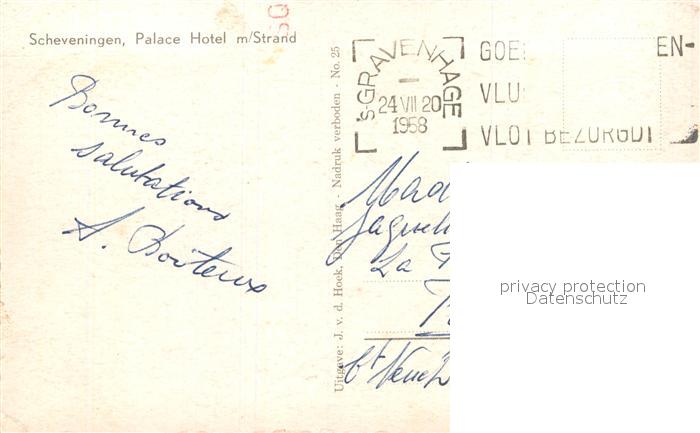 Scheveningen, Palace Hotel m/Strand
Bonnes
salutations
A. Boiteux
Uitgave: J. v. d. Hoek, Den Haag - Nadruk verboden - No. 25
's-GRAVENHAGE
24 VII 20
1958
EN-
VLOT BEZORGD!
La
privacy protection
Datenschutz